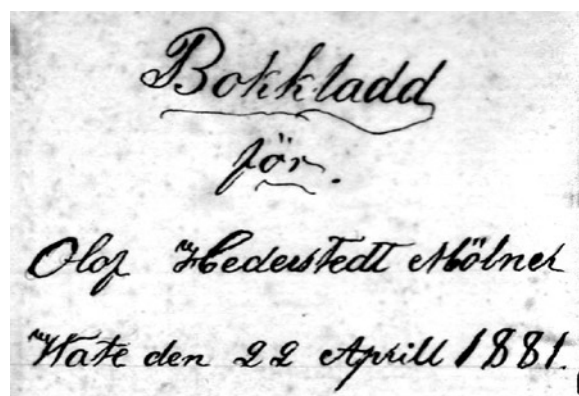 Bokkladd
för.
Olof Hederstedt Mölner
Wate den 22 Aprill 1881.